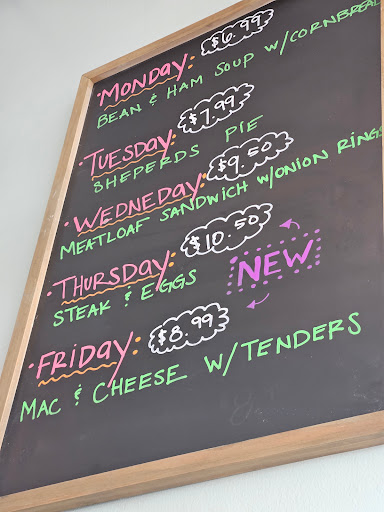 • MONDAY: $6.99
BEAN & HAM SOUP W/CORNBREAD
• TUESDAY: $7.99
SHEPERDS PIE
• WEDNEDAY: $9.50
MEATLOAF SANDWICH W/ONION RINGS
• THURSDAY: $10.50
STEAK & EGGS
NEW
• FRIDAY: $8.99
MAC & CHEESE W/TENDERS